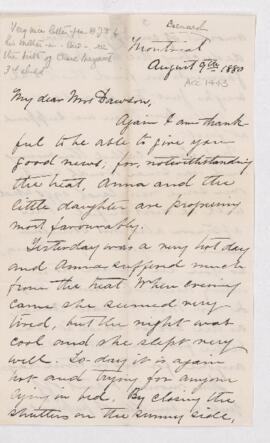 Very nice letter from BJH to
his mother-in-law - re
the birth of Clare Margaret
3rd child
Montreal
August 9th 1880
Acc 1443
My dear Mrs Dawson,
Again I am thank
ful to be able to give you
good news, for, notwithstanding
the heat, Anna and the
little daughter are progressing
most favourably.
Yesterday was a very hot day
and Anna suffered much
from the heat. When evening
came she seemed very
tired, but the night was
cool and she slept very
well. To-day it is again
hot and trying for anyone
lying in bed. By closing the
shutters on the sunny side,